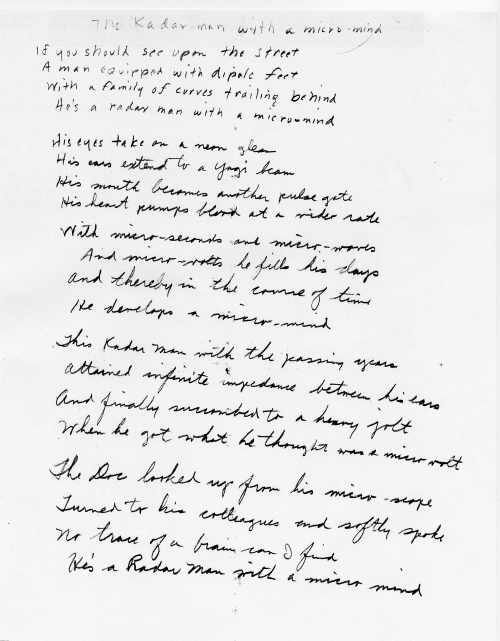 The Radar man with a micro-mind
If you should see upon the street
A man equipped with dipole feet
With a family of curves trailing behind
He's a radar man with a micro-mind
His eyes take on a neon gleam
His ears extend to a Yagi beam
His mouth becomes another pulse gate
His heart pumps blood at a video rate
With micro-seconds and micro-waves
And micro-volts he fills his days
And thereby in the course of time
He develops a micro-mind
This Radar Man with the passing years
Attained infinite impedance between his ears
And finally succumbed to a heavy jolt
When he got what he thought was a micro volt
The Doc looked up from his micro-scope
Turned to his colleagues and softly spoke
No trace of a brain can I find
He's a Radar Man with a micro mind